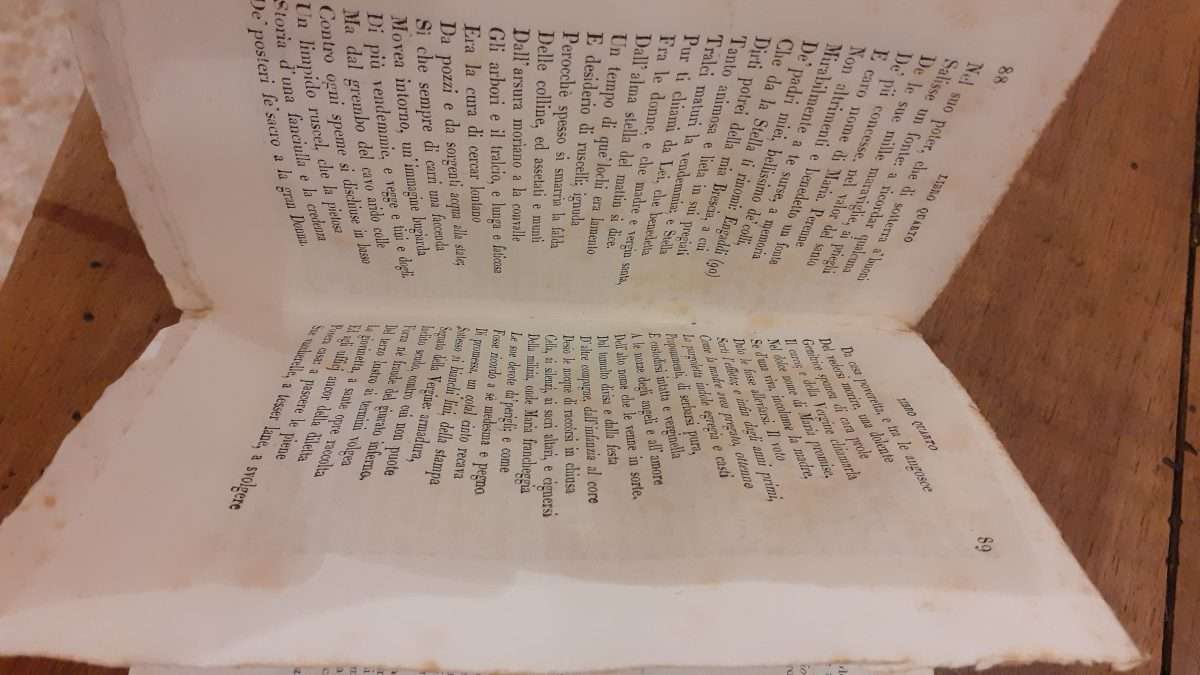 88
LIBRO QUARTO
Nel suo poter, che di sotterra a' buoni
Salisse un fonte: a ricordar qualcuna
De le sue mille maraviglie, ai
De' pii concesse nel valor dei prieghi
E caro nome di Maria. Perenne
Non altrimenti e
Mirabilmente e benedetto un fonte
De' padri miei, bellissimo de' colli,
Che da la Stella ti rinomi; Engaddi (90)
Dirti potrei della mia Brescia, a cui
Tanto animosa e lieta in sui pregiati
Tralci maturi la vendemmia; e Stella
Pur ti chiami da Lei, che benedetta
Fra le donne, e che madre e vergin santa,
Dall'alma stella del mattin si dice.
Un tempo di que' lochi era lamento
E desiderio di ruscelli; ignuda
Perocchè spesso si smarria la falda
Delle colline, ed assetati e munti
Dall'arsura moriano a la convalle
Gli arbori e il tralcio, e lunga e faticosa
Era la cura di cercar lontano
Da pozzi e da sorgenti acqua alla state;
Sì che sempre di carri una faccenda
Movea intorno, un'immagne bugiarda
Di più vendemmie, e vegge e tini e dogli.
Ma dal grembo del cavo arido colle
Contro ogni speme si dischiuse in basso
Un limpido ruscel, che la pietosa
Storia d'una fanciulla e la credenza
De' posteri fe' sacro a la gran Donna.
LIBRO QUARTO
89
Da casa poveretta, e tra le angosce
Del vedersi morire, una dolente
Genitrice giunta di cara prole
Il caro; e della Vergine chiamarla
Nel dolce nome di Maria promise,
Se d'una viva, incolume la madre,
Dato le fosse allietarsi. Il voto
Sortì l'effetto; e infin dagli anni primi,
Come la madre avea pregato, ottenne
La pargoletta indole egregia e casti
Proponimenti di serbarsi pura,
E custodirsi intatta e verginella
A le nozze degli angeli e all'amore
Dell'alto nome che le venne in sorte.
Dal tumulto divisa e dalla festa
D'altre compagne, dall'infanzia al core
Desiò le nacque di raccorsi in chiusa
Cella, ai silenzi, ai sacri altari, e cignersi
Della milizia, onde Maria francheggia
Le sue devote da' perigli; e come
Fosse ricordo a sè medesma e pegno
Di promessa, un cotal cinto recava
Sotesso ai bianchi lini, della stampa
Segnato della Vergine: armadura,
Inclito scudo, contro cui non puote
Forza nè fraude del giurato inferno.
Del terzo lustro ai termini volgea
La giovinetta, a sante opre raccolta,
Ed agli uffici ancor della diletta
Povera casa: a pascere le piene
Sue vaccherelle, a tesser lane, a svolgere